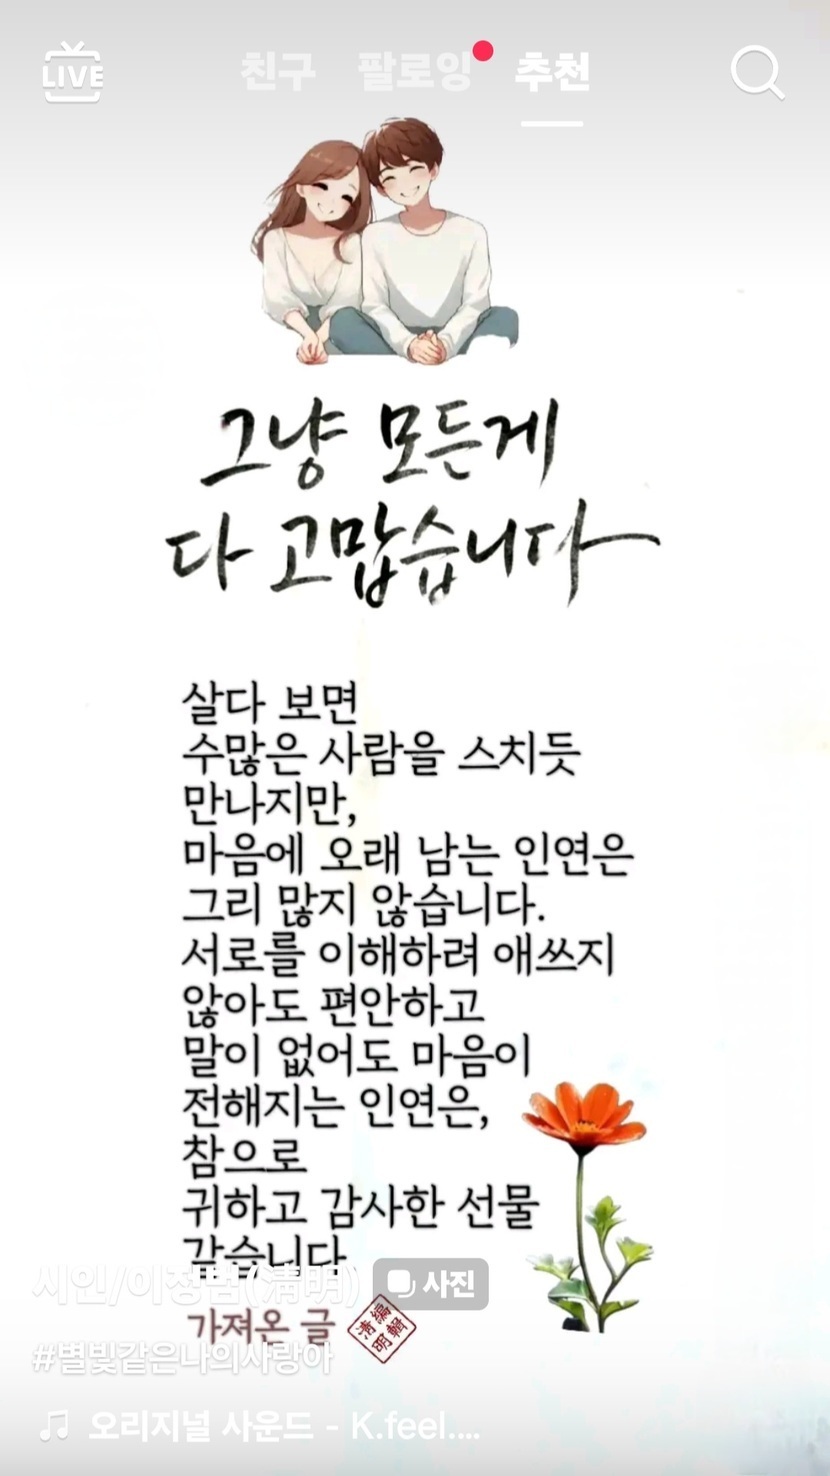 LIVE 친구 팔로잉 추천
그냥 모든게
다 고맙습니다
살다 보면
수많은 사람을 스치듯
만나지만,
마음에 오래 남는 인연은
그리 많지 않습니다.
서로를 이해하려 애쓰지
않아도 편안하고
말이 없어도 마음이
전해지는 인연은,
참으로
귀하고 감사한 선물
같습니다
시인/이정범(淸明) 사진
가져온 글
淸明編輯
#별빛같은나의사랑아
오리지널 사운드 - K.feel....